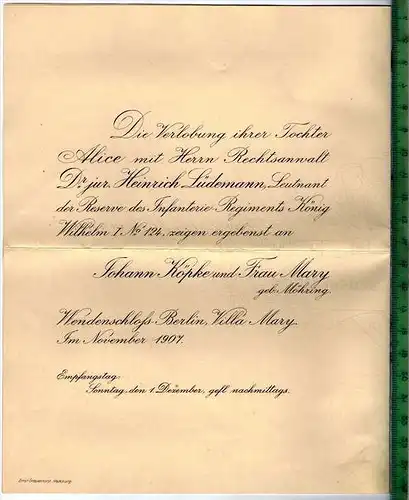 Die Verlobung ihrer Tochter
Alice mit Herrn Rechtsanwalt
Dr. jur. Heinrich Lüdemann, Leutnant
der Reserve des Infanterie-Regiments König
Wilhelm I. No 124, zeigen ergebenst an
Johann Köpke und Frau Mary
geb. Möhring.
Wendenschloss-Berlin, Villa Mary.
Im November 1907.
Empfangstag
Sonntag, den 1. Dezember, gefl. nachmittags.